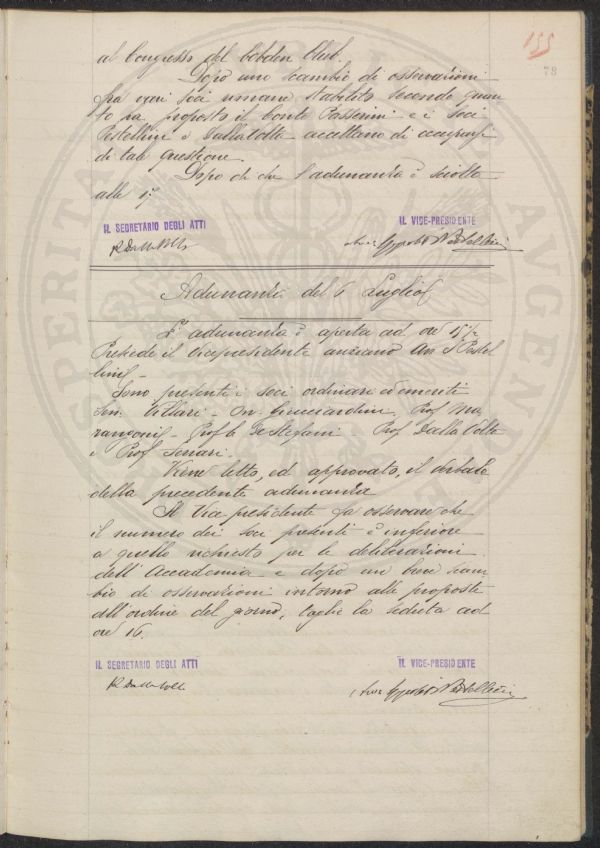 155
78
al Congresso del Cobden Club.
Dopo uno scambio di osservazioni
fra varî soci rimane stabilito secondo quan
to ha proposto il Conte Passerini e i Soci
Pestellini e Dalla Volta accettano di occuparsi
di tali questione.
Dopo di che l'adunanza è sciolta
alle 17
IL SEGRETARIO DEGLI ATTI
IL VICE-PRESIDENTE
R Dalla Volta
Avv. Ippolito Pestellini
Adunanza del 6 Luglio
L'adunanza è aperta ad ore 15 1/2
Presiede il vicepresidente anziano Avv I Pestel
lini -
Sono presenti i soci ordinari ed emeriti
Sen. Villari - On. Guicciardini, Prof Ma
rangoni - Prof De Stefani - Prof Dalla Volta
e Prof Ferrari.
Viene letto, ed approvato, il verbale
della precedente adunanza
Il Vice presidente fa osservare che
il numero dei soci presenti è inferiore
a quello richiesto per le deliberazioni
dell'Accademia e dopo un breve scam
bio di osservazioni intorno alle proposte
all'ordine del giorno, toglie la seduta ad
ore 16.
IL SEGRETARIO DEGLI ATTI
IL VICE-PRESIDENTE
R Dalla Volta
Avv Ippolito Pestellini